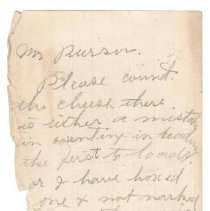 Mr Purson.
Please count
the cheese there.
is either a mistak
in counting in load
the first to loads
or I have hosed
one & not marked